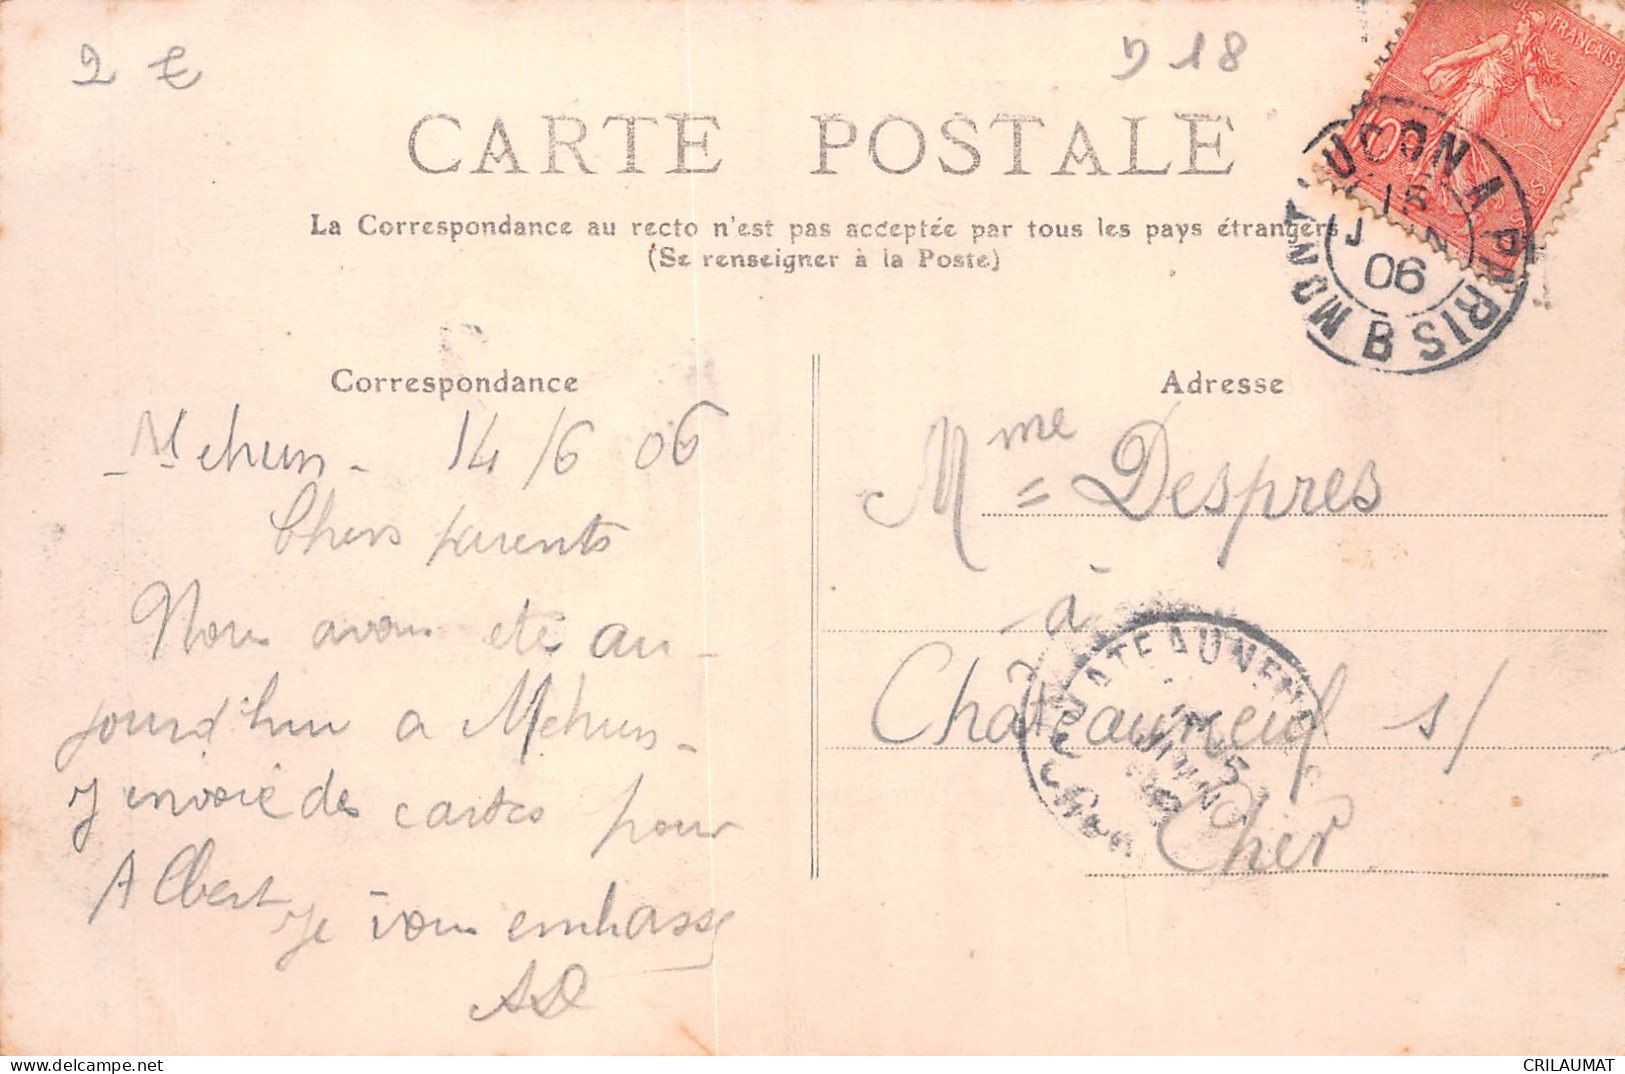 2 €
D 18
CARTE POSTALE
La Correspondance au recto n'est pas acceptée par tous les pays étrangers
(Se renseigner à la Poste)
FRANÇAISE
MONTLUCON A PARIS B
15
JUIN
06
Correspondance
Mehun - 14/6 06
Chers parents
Nous avons eté au-
jourd'hui a Mehun -
J'envoie des cartes pour
Albert Je vous embrasse
AD
Adresse
Mme Despres
à
Châteauneuf s/
Cher
CHATEAUNEUF
CHER
CRILAUMAT